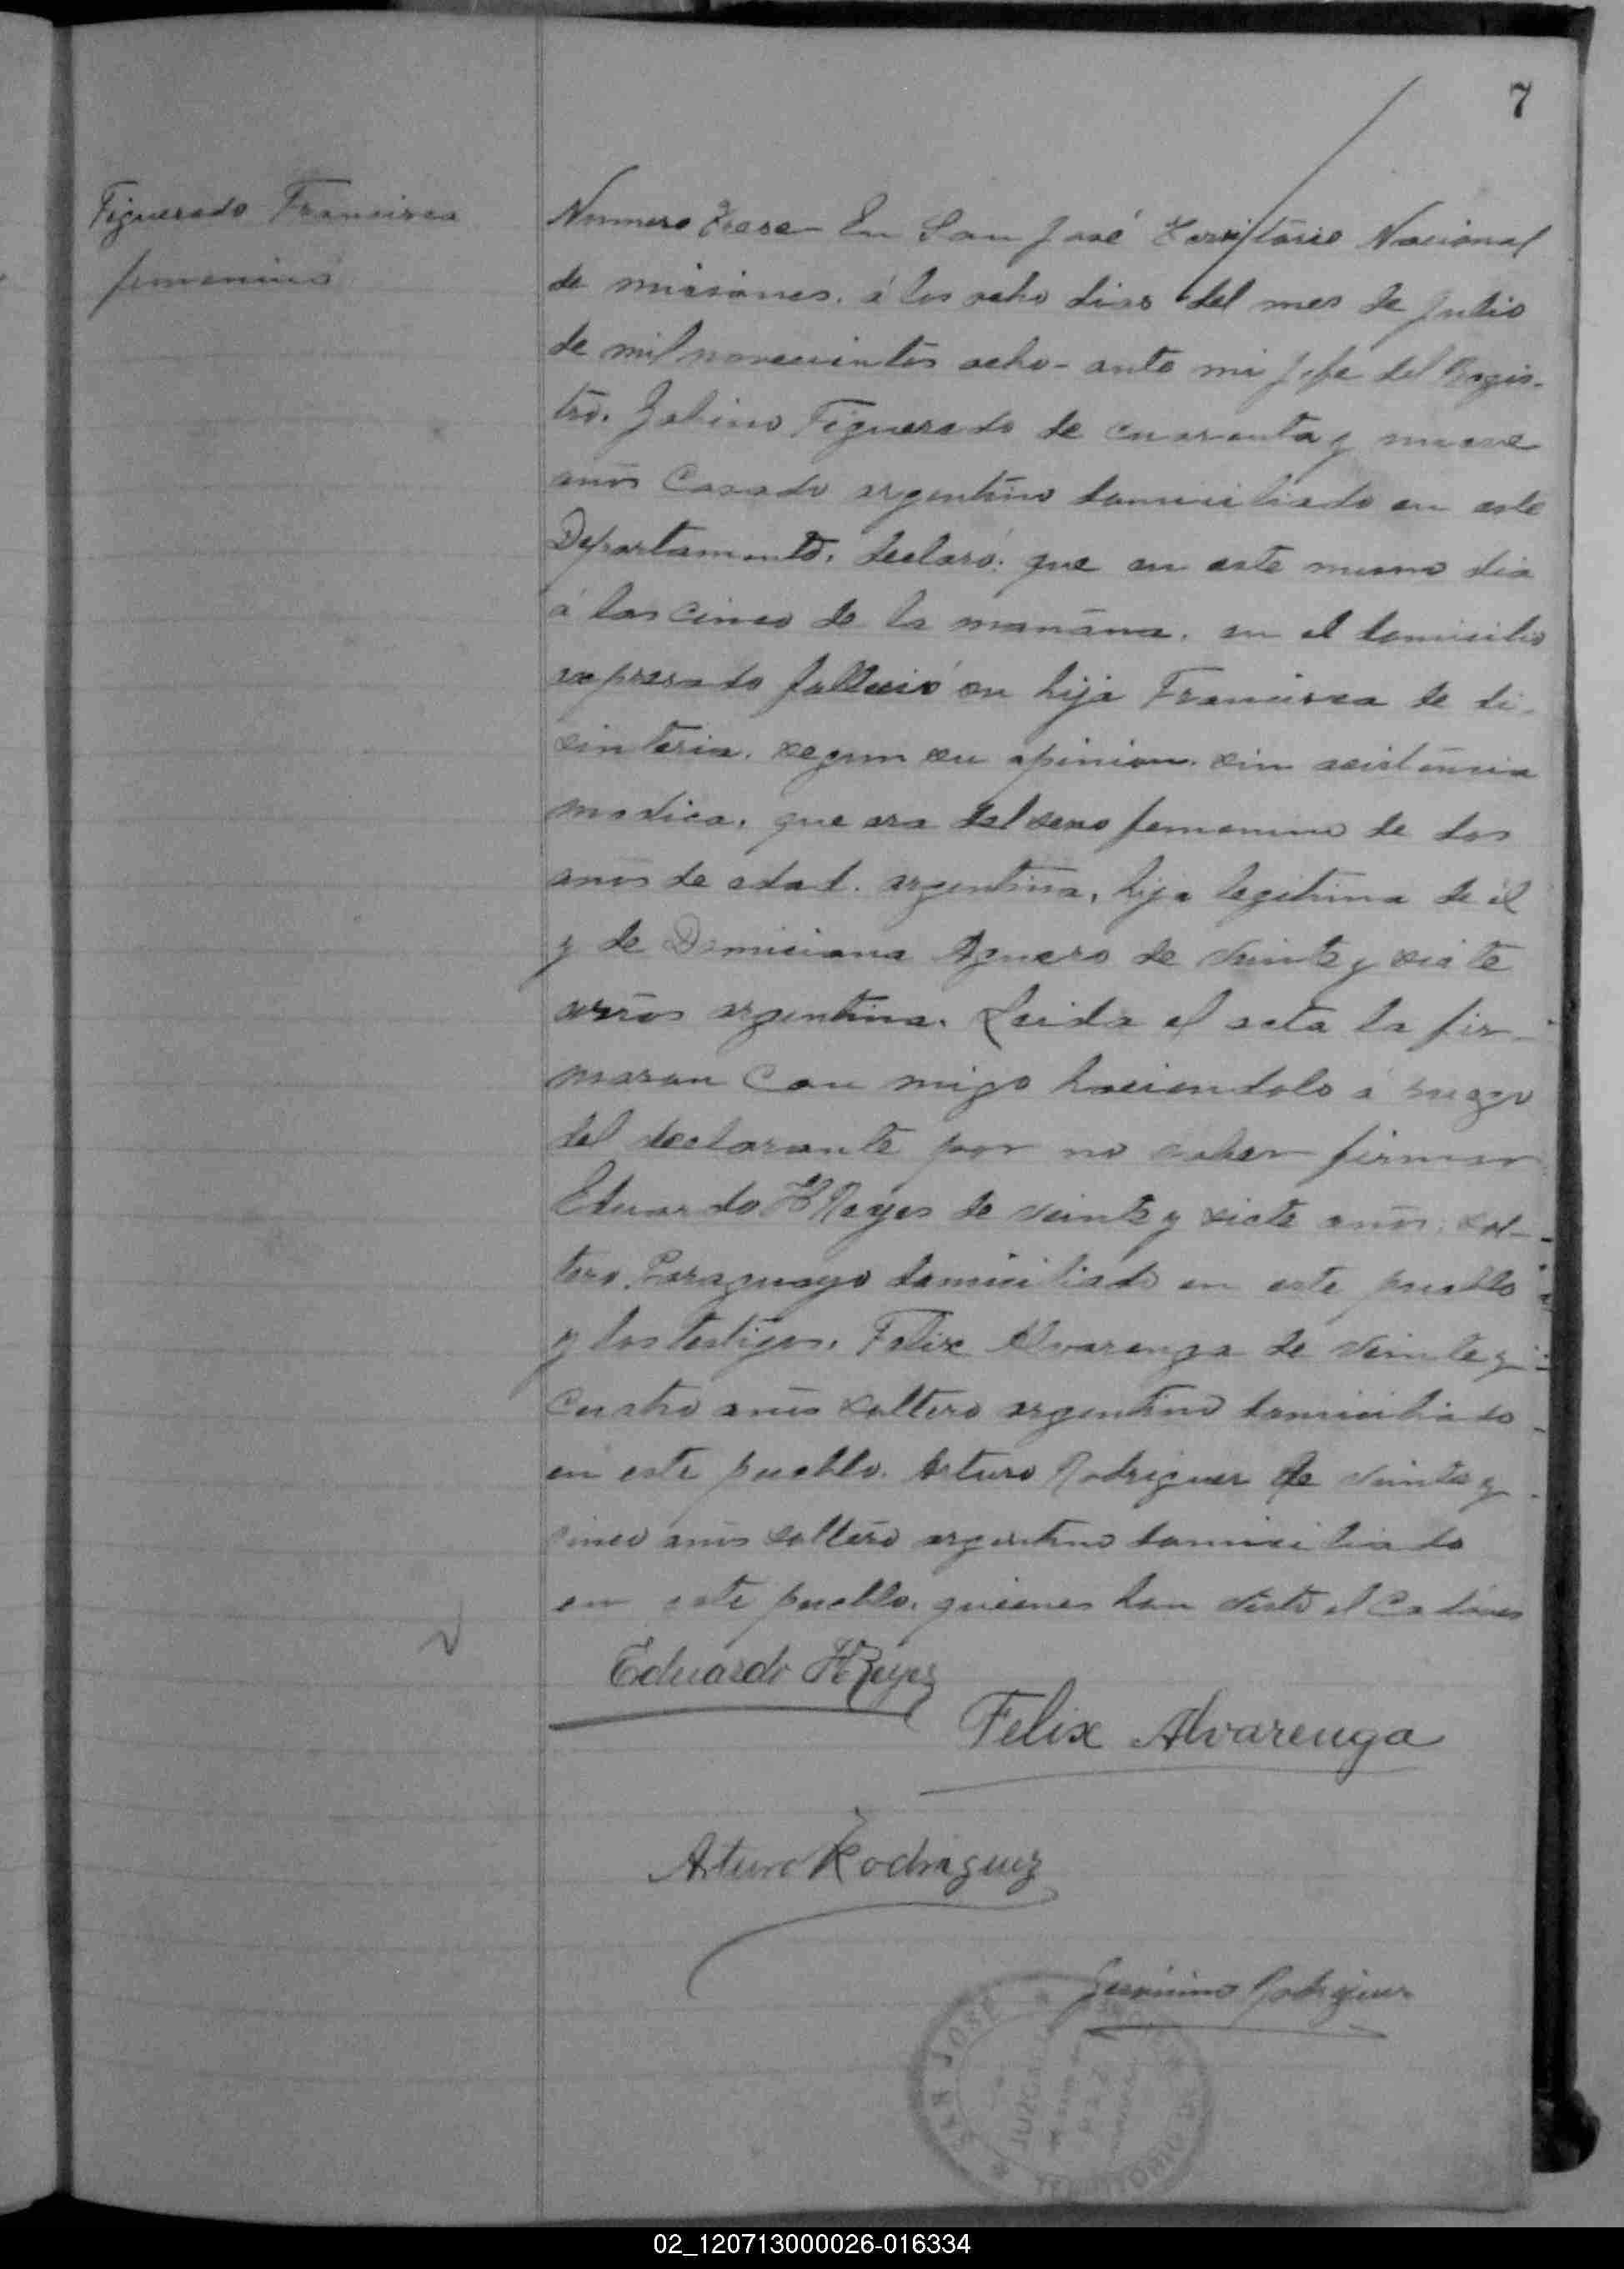 7
Figueredo Francisca
femenino
Numero Trese - En San José Territorio Nacional
de misiones. á los ocho dias del mes de Julio
de mil novecientos ocho - ante mi Jefe del Regis-
tro. Gabino Figueredo de cuarenta y nueve
años Casado argentino domiciliado en este
Departamento. declaró: que en este mismo dia
á las cinco de la mañana. en el domicilio
espresado fallecio su hija Francisca de di-
sinteria. segun su opinion. sin asistencia
medica. que era del sexo femenino de dos
años de edad. argentina, hija legitima de él
y de Domiciana Aguero de veinte y siete
años argentina. Leida el acta la fir-
maron con migo haciendolo á ruego
del declarante por no saber firmar
Eduardo H Reyes de veinte y siete años. sol-
tero Paraguayo domiciliado en este pueblo
y los testigos. Felix Alvarenga de veinte y
cuatro años soltero argentino domiciliado
en este pueblo. Arturo Rodriguez de veinte y
cinco años soltero argentino domiciliado
en este pueblo. quienes han visto el Cadaver
Eduardo H Reyes
Felix Alvarenga
Arturo Rodriguez
Gerónimo Rodriguez
SAN JOSE
JUZGADO
PAZ
TERRITORIO DE
02_120713000026-016334